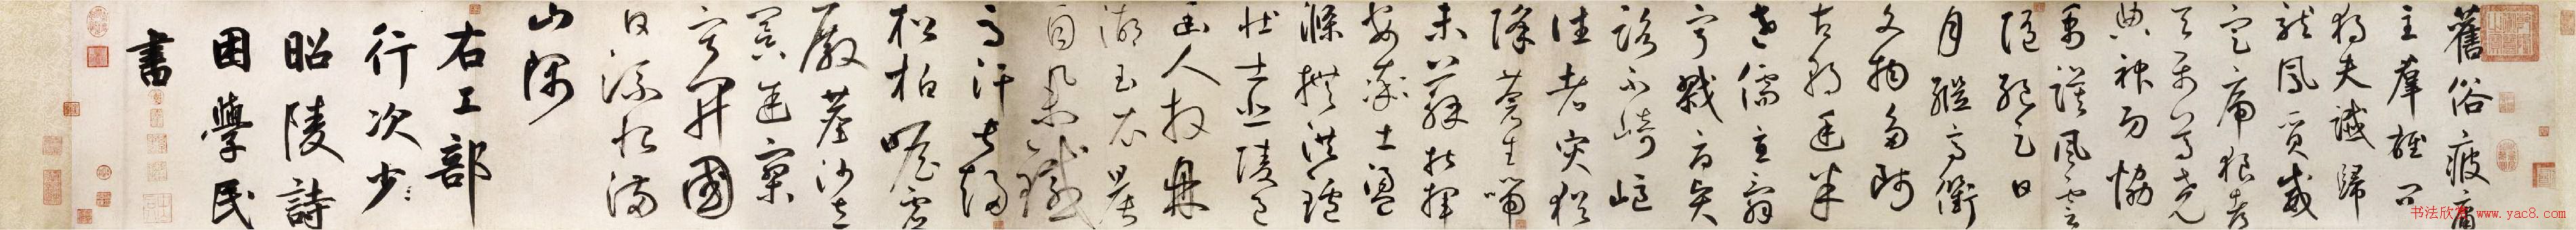 舊俗疲庸
主羣雄問
獨夫讖歸
龍鳳質威
定虎狼都
天属尊堯
典神功協
禹謨風雲
隨絕足日
月繼高衢
文物多師
古朝廷半
老儒直辭
寧戮辱賢
路不崎嶇
往者灾猶
降蒼生喘
未蘇指揮
安率土盪
滌撫洪鑪
壯士悲陵邑
幽人拜鼎
湖玉衣晨
自舉鐵
馬汗常趨
松柏瞻虛
殿塵沙立
暝途寂
寥開國
日流恨滿
山隅
右工部
行次少
昭陵詩
困學民
書
书法欣赏 www.yac8.com